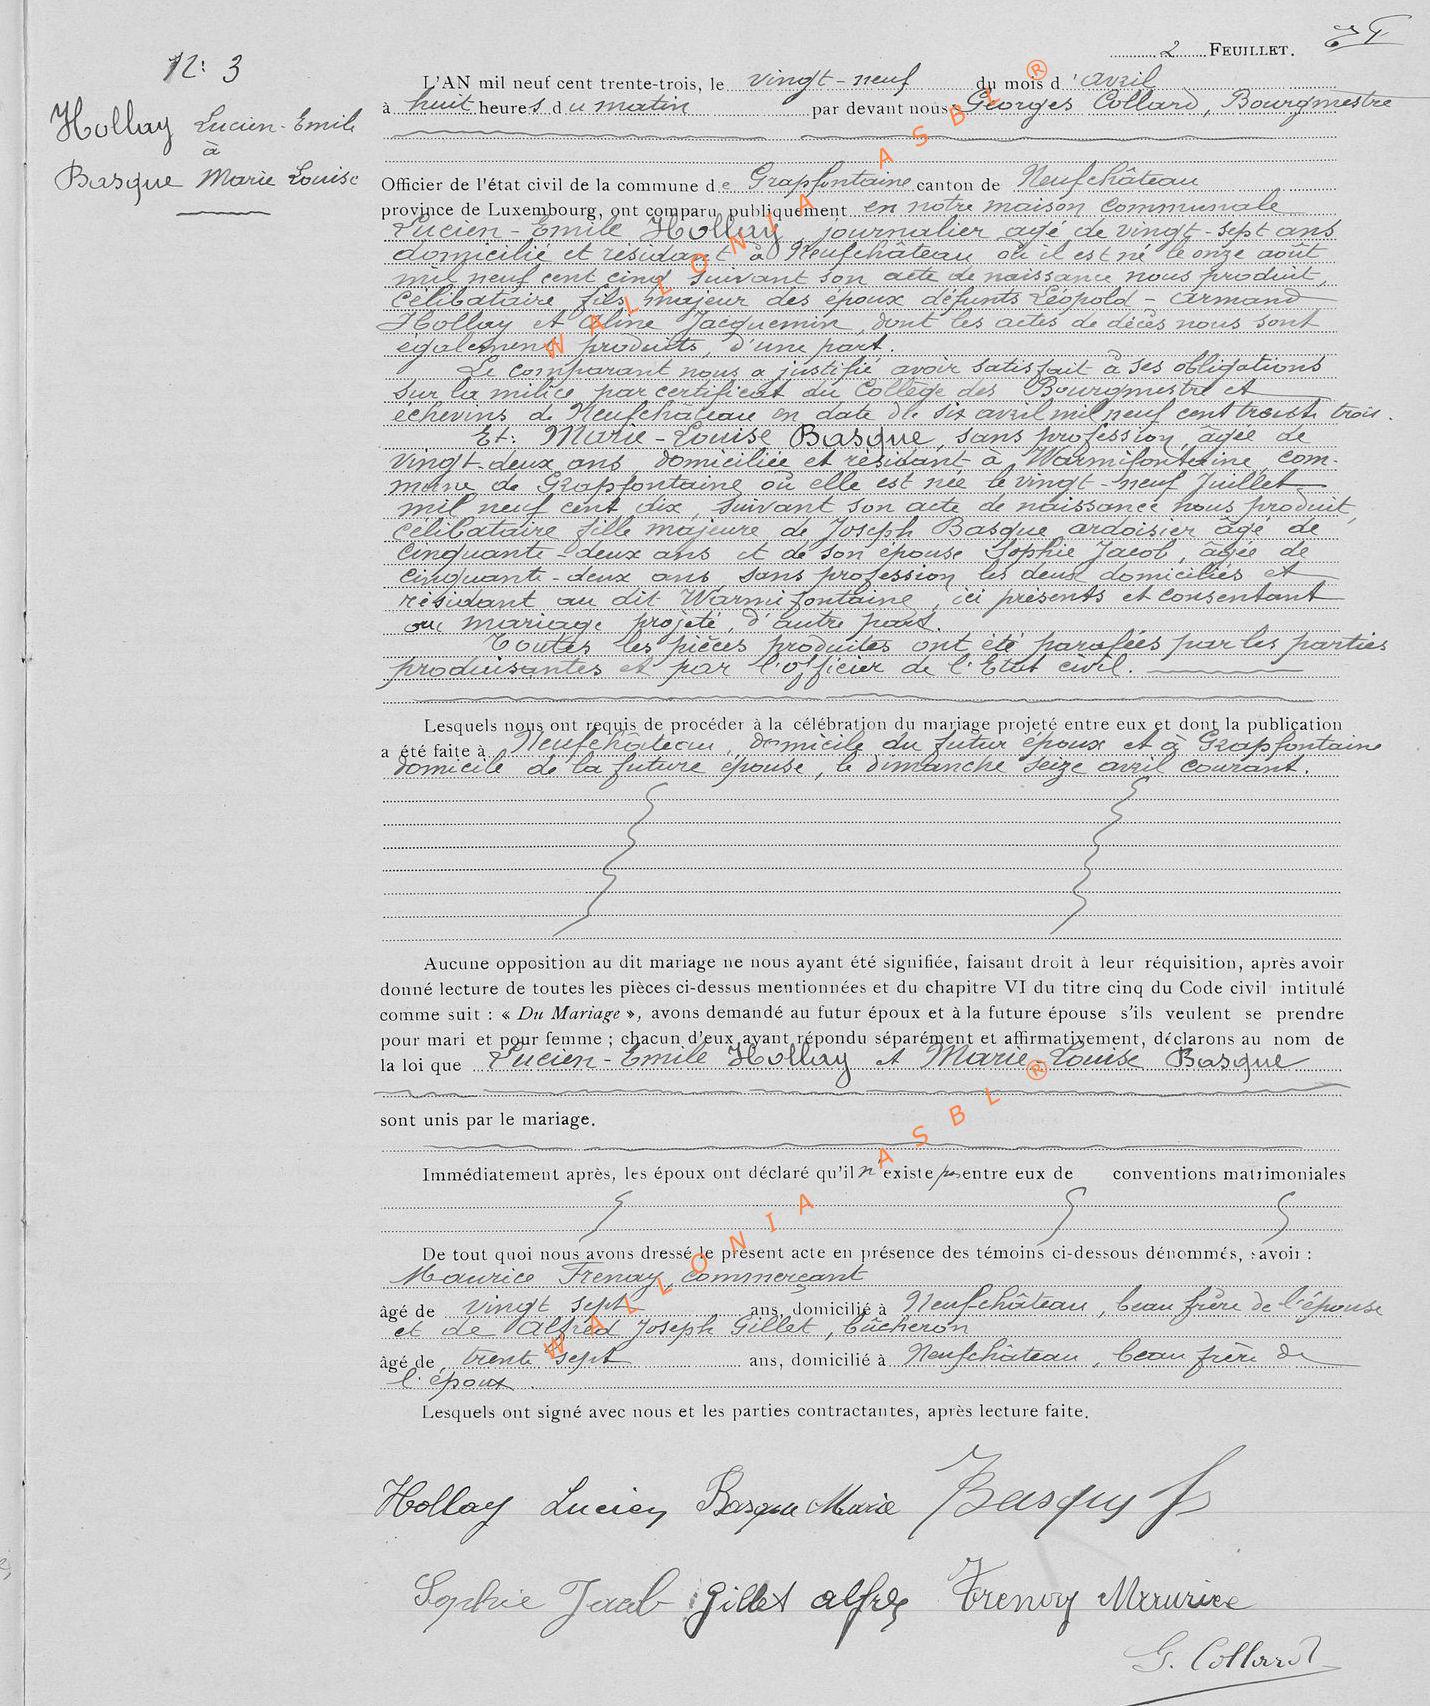 2 FEUILLET.
N: 3
Hollay Lucien-Emile
à
Basque Marie Louise
L'AN mil neuf cent trente-trois, le vingt-neuf du mois d'avril
à huit heures du matin par devant nous Georges Collard, Bourgmestre
Officier de l'état civil de la commune de Grapfontaine canton de Neufchâteau
province de Luxembourg, ont comparu publiquement en notre maison communale
Lucien-Emile Hollay, journalier agé de vingt-sept ans
domicilié et résidant à Neufchâteau où il est né le onze août
mil neuf cent cinq suivant son acte de naissance nous produit,
célibataire fils majeur des époux défunts Léopold-Armand
Hollay et Aline Jacquemin, dont les actes de décès nous sont
également produits, d'une part.
Le comparant nous a justifié avoir satisfait à ses obligations
sur la milice par certificat du Collège des Bourgmestre et
échevins de Neufchâteau en date du six avril mil neuf cent trente trois.
Et: Marie-Louise Basque, sans profession, âgée de
vingt-deux ans, domiciliée et résidant à Warmifontaine, com-
mune de Grapfontaine où elle est née le vingt-neuf Juillet
mil neuf cent dix, suivant son acte de naissance nous produit,
célibataire fille majeure de Joseph Basque ardoisier âgé de
cinquante-deux ans et de son épouse Sophie Jacob, âgée de
cinquante-deux ans, sans profession les deux domiciliés et
résidant au dit Warmifontaine, ici présents et consentant
au mariage projeté, d'autre part.
Toutes les pièces produites ont été parafées par les parties
produisantes et par l'officier de l'Etat civil.
Lesquels nous ont requis de procéder à la célébration du mariage projeté entre eux et dont la publication
a été faite à Neufchâteau, domicile du futur époux et à Grapfontaine
domicile de la future épouse, le dimanche seize avril courant.
Aucune opposition au dit mariage ne nous ayant été signifiée, faisant droit à leur réquisition, après avoir
donné lecture de toutes les pièces ci-dessus mentionnées et du chapitre VI du titre cinq du Code civil intitulé
comme suit : « Du Mariage », avons demandé au futur époux et à la future épouse s'ils veulent se prendre
pour mari et pour femme ; chacun d'eux ayant répondu séparément et affirmativement, déclarons au nom de
la loi que Lucien-Emile Hollay et Marie-Louise Basque
sont unis par le mariage.
Immédiatement après, les époux ont déclaré qu'il n'existe pas entre eux de conventions matrimoniales
De tout quoi nous avons dressé le présent acte en présence des témoins ci-dessous dénommés, savoir :
Maurice Frenay, commerçant
âgé de vingt sept ans, domicilié à Neufchâteau, beau frère de l'épouse
et de Alfred Joseph Gillet, bûcheron
âgé de trente sept ans, domicilié à Neufchâteau, beau frère de
l'époux.
Lesquels ont signé avec nous et les parties contractantes, après lecture faite.
Hollay Lucien Basque Marie Basque J
Sophie Jacob Gillet Alfred Frenay Maurice
G. Collard
WALLONIA ASBL ®
WALLONIA ASBL ®